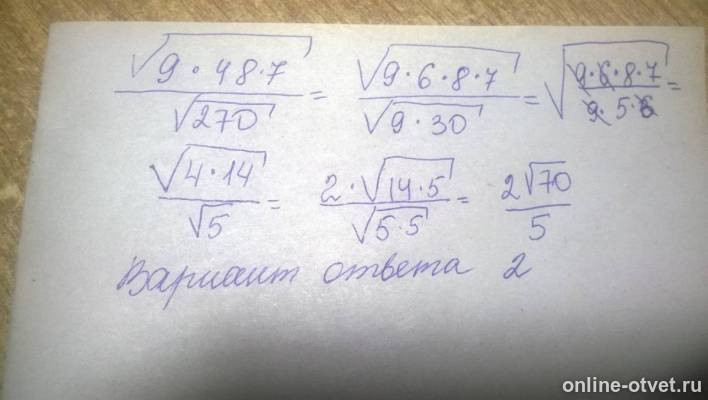 √(9·48·7)/√270 = √(9·6·8·7)/√(9·30) = √((9·6·8·7)/(9·5·6)) =
√(4·14)/√5 = 2·√(14·5)/√(5·5) = 2√70/5
Вариант ответа 2
online-otvet.ru